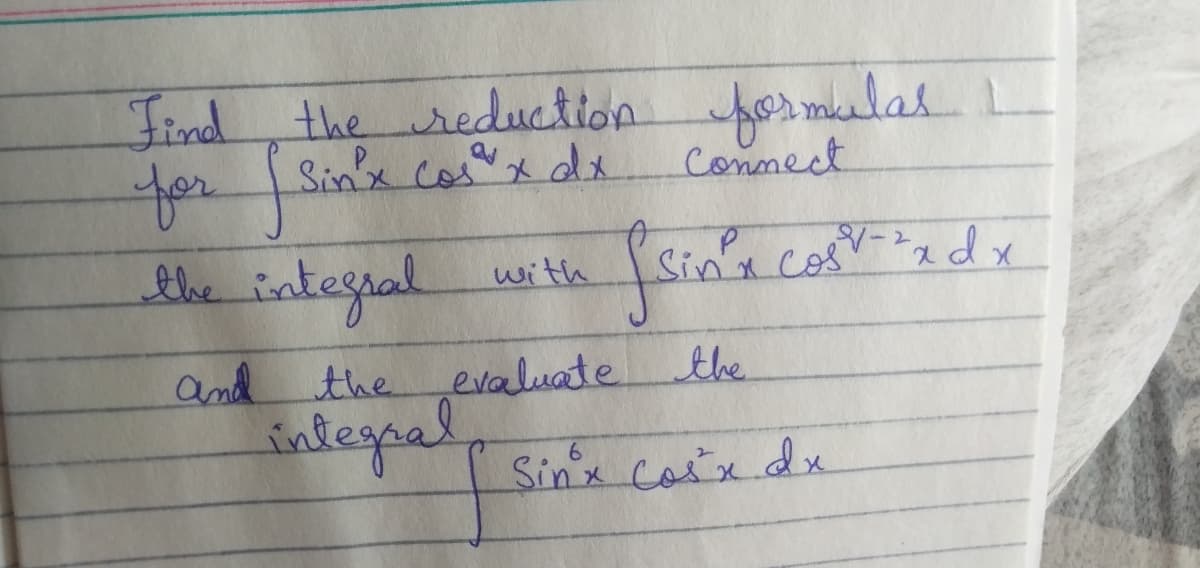 Find the reduction formulas
for ∫ Sin^p x Cos^q x dx Connect
the integral with ∫ Sin^p x Cos^(q-2) x dx
and the evaluate the
integral ∫ Sin^6 x Cos^2 x dx